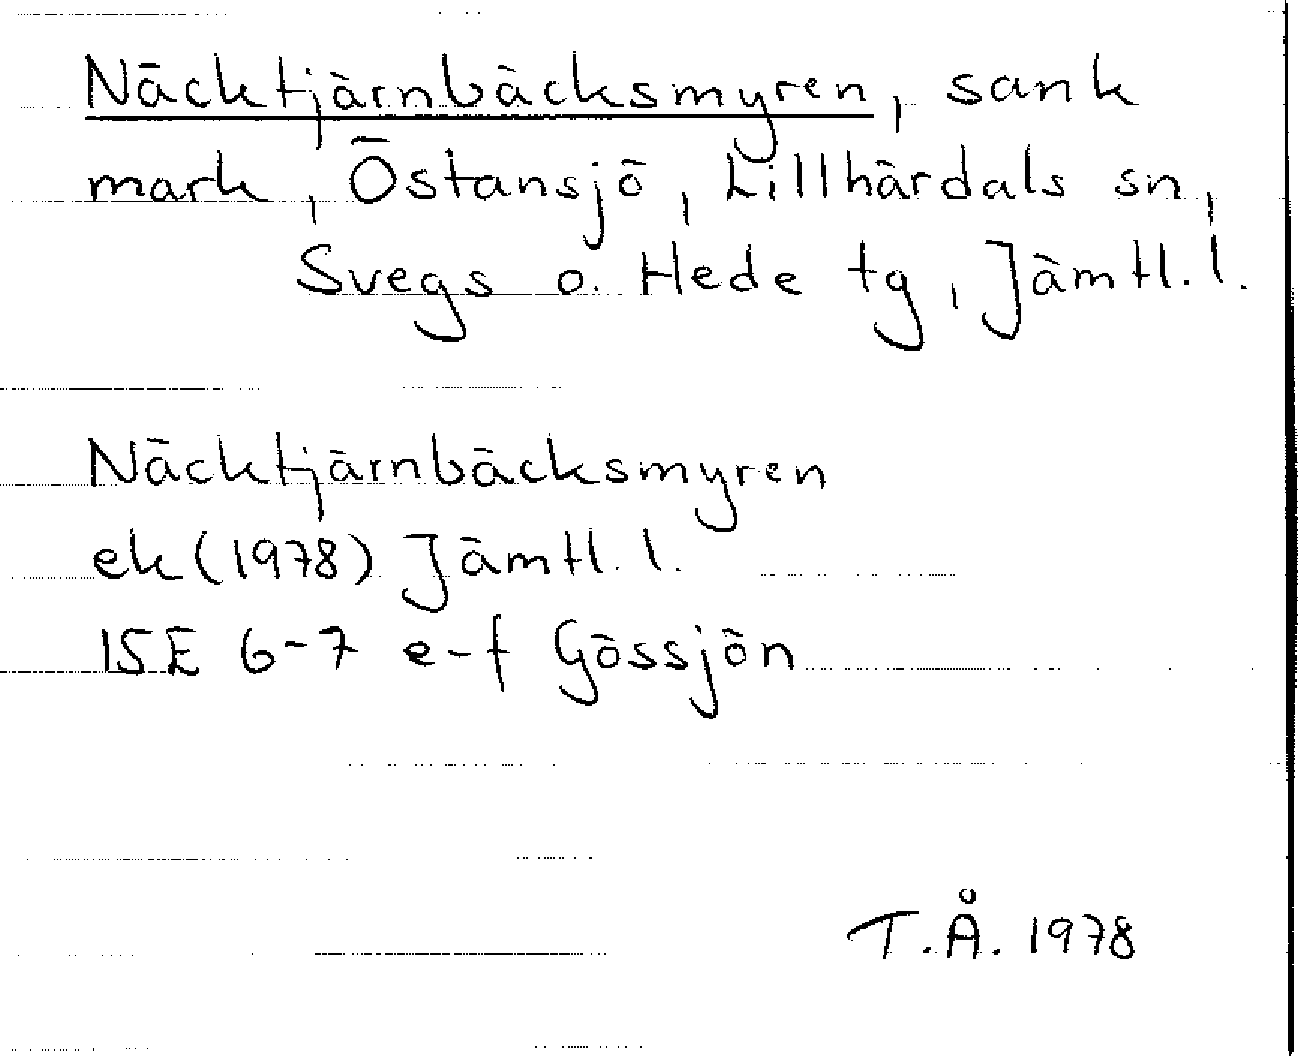 Näcktjärnbäcksmyren, sank
mark, Östansjö, Lillhärdals sn,
Svegs o. Hede tg, Jämtl. l.
Näcktjärnbäcksmyren
ek (1978) Jämtl. l.
15E 6-7 e-f Gössjön
T.Å. 1978